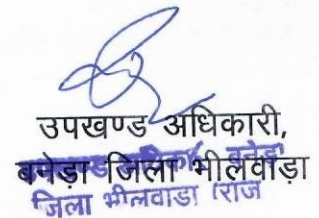 उपखण्ड अधिकारी,
बनेड़ा जिला भीलवाड़ा
जिला भीलवाडा (राज